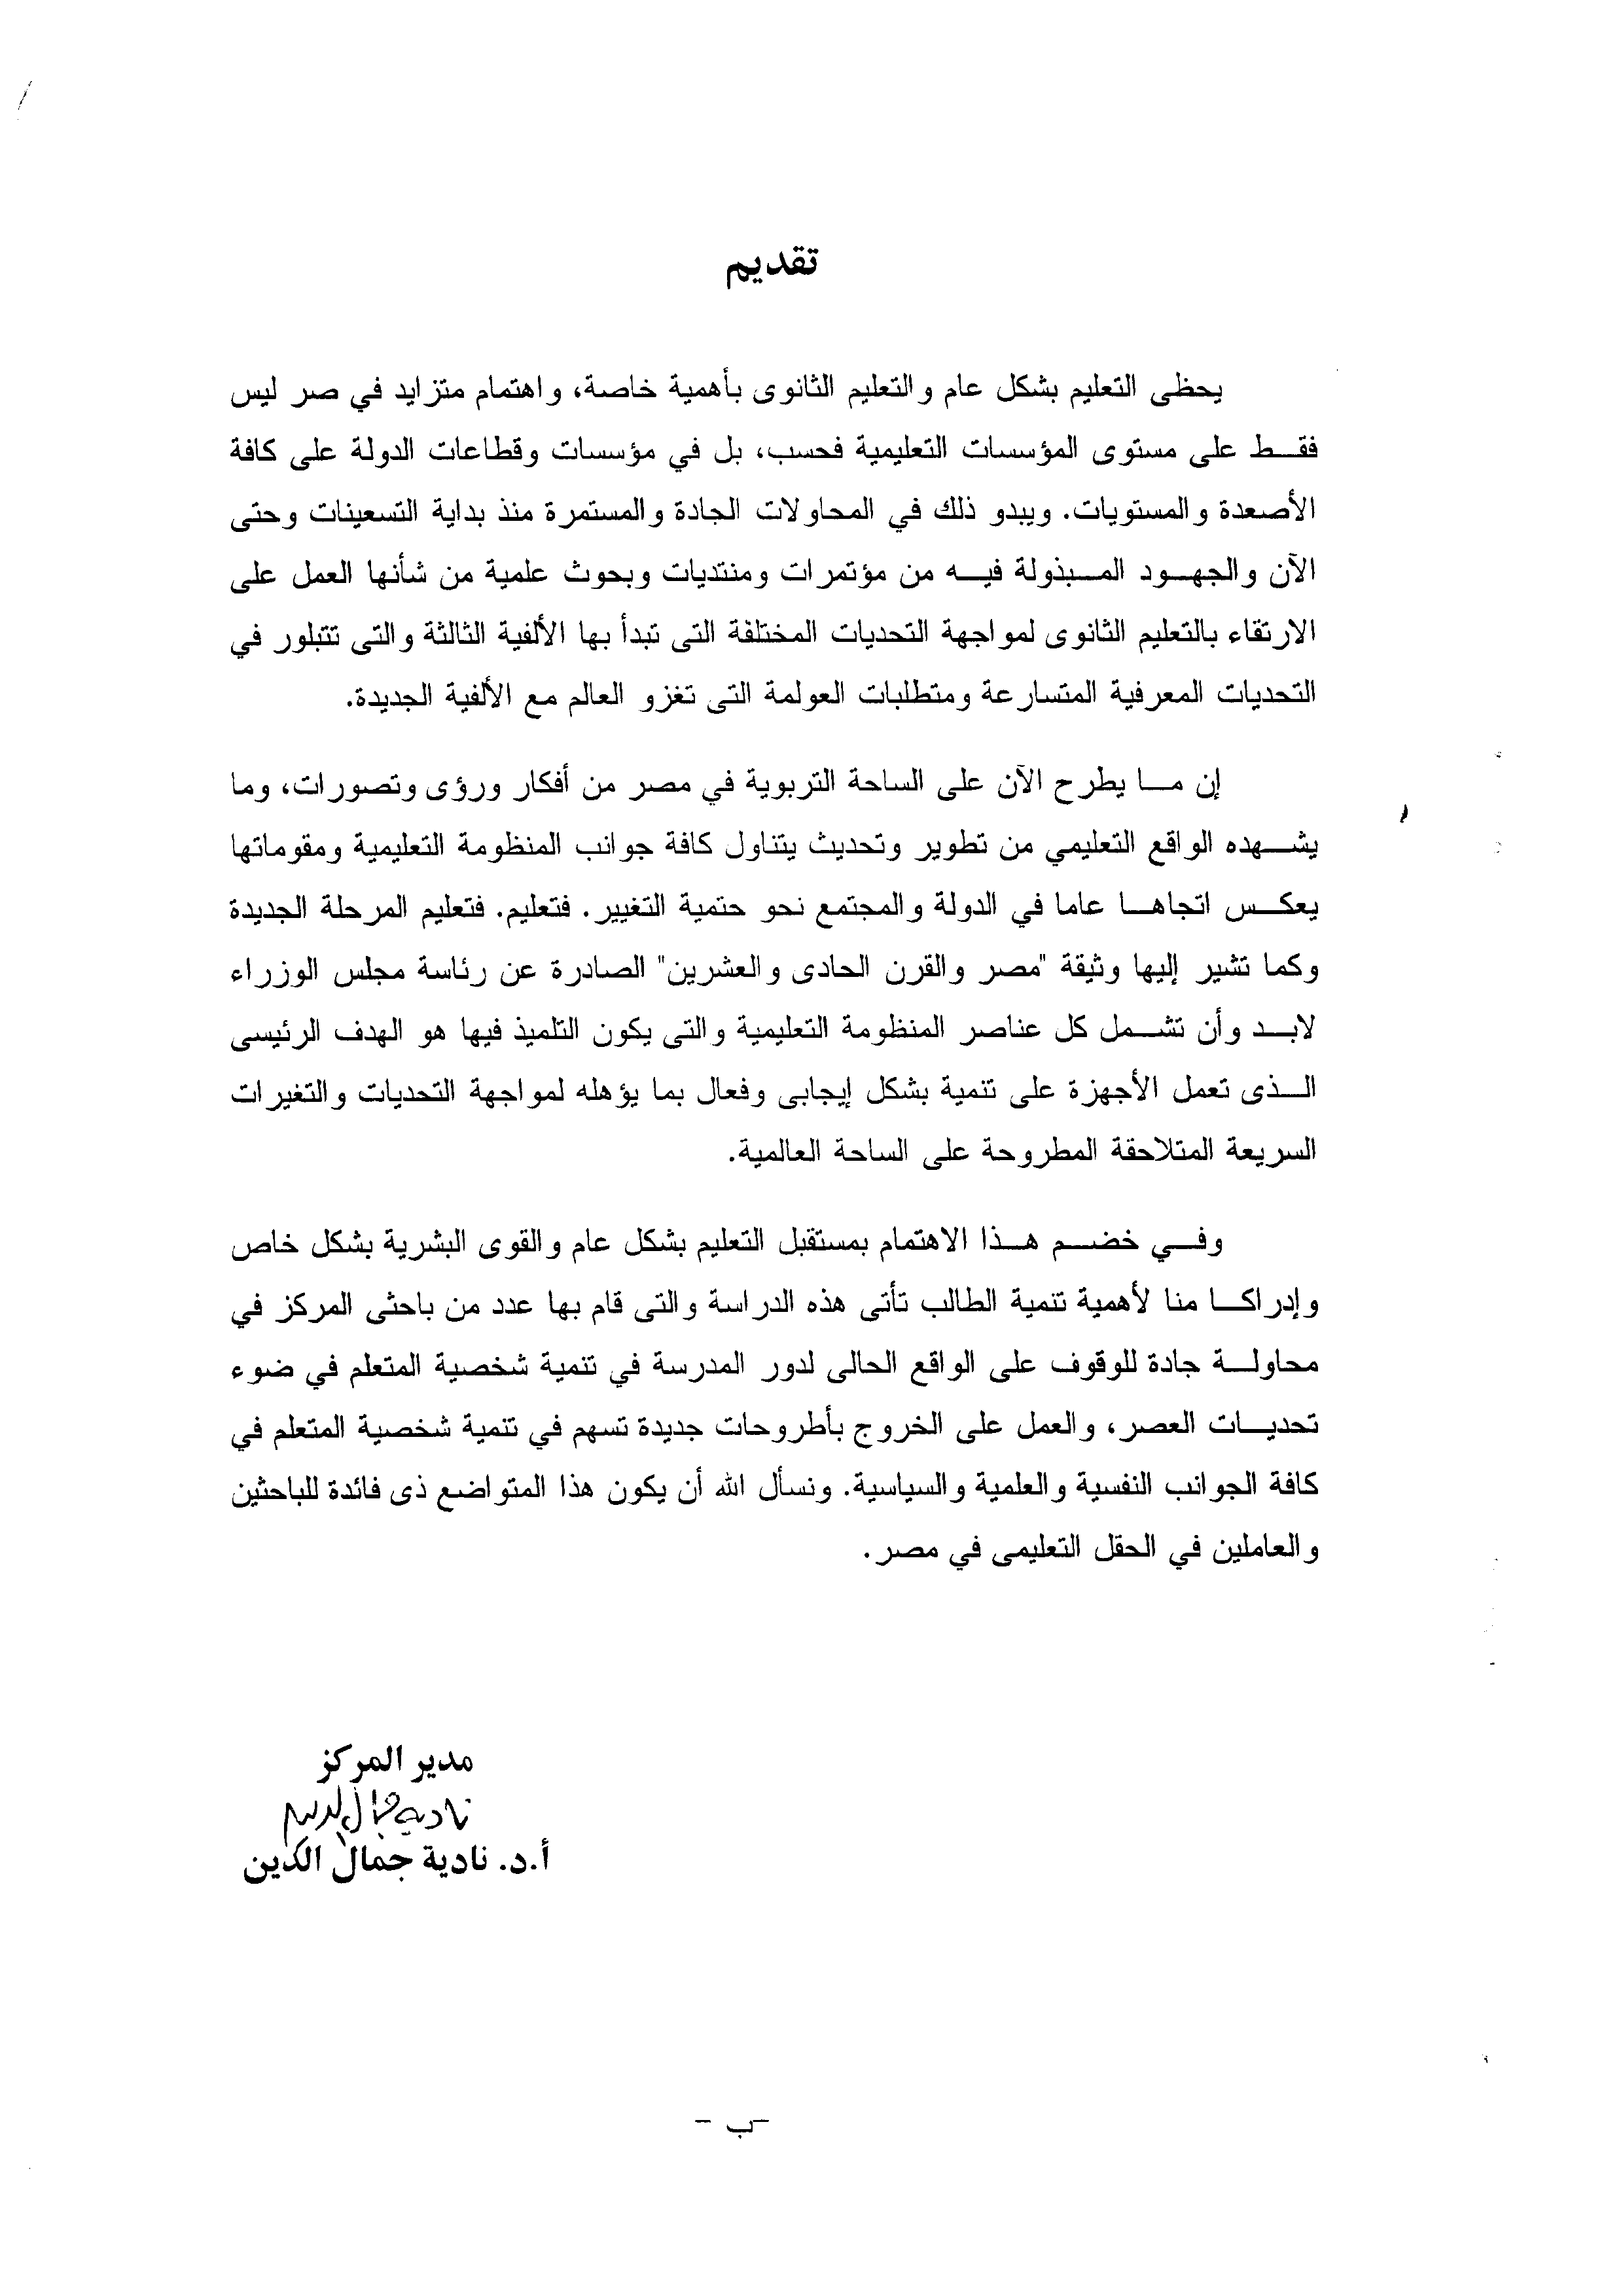 تقديم
يحظى التعليم بشكل عام والتعليم الثانوى بأهمية خاصة، واهتمام متزايد في صر ليس
فقط على مستوى المؤسسات التعليمية فحسب، بل في مؤسسات وقطاعات الدولة على كافة
الأصعدة والمستويات. ويبدو ذلك في المحاولات الجادة والمستمرة منذ بداية التسعينات وحتى
الآن والجهود المبذولة فيه من مؤتمرات ومنتديات وبحوث علمية من شأنها العمل على
الارتقاء بالتعليم الثانوى لمواجهة التحديات المختلفة التى تبدأ بها الألفية الثالثة والتى تتبلور في
التحديات المعرفية المتسارعة ومتطلبات العولمة التى تغزو العالم مع الألفية الجديدة.
إن ما يطرح الآن على الساحة التربوية في مصر من أفكار ورؤى وتصورات، وما
يشهده الواقع التعليمي من تطوير وتحديث يتناول كافة جوانب المنظومة التعليمية ومقوماتها
يعكس اتجاها عاما في الدولة والمجتمع نحو حتمية التغيير. فتعليم. فتعليم المرحلة الجديدة
وكما تشير إليها وثيقة "مصر والقرن الحادى والعشرين" الصادرة عن رئاسة مجلس الوزراء
لابد وأن تشمل كل عناصر المنظومة التعليمية والتى يكون التلميذ فيها هو الهدف الرئيسى
الذى تعمل الأجهزة على تنمية بشكل إيجابى وفعال بما يؤهله لمواجهة التحديات والتغيرات
السريعة المتلاحقة المطروحة على الساحة العالمية.
وفي خضم هذا الاهتمام بمستقبل التعليم بشكل عام والقوى البشرية بشكل خاص
وإدراكا منا لأهمية تنمية الطالب تأتى هذه الدراسة والتى قام بها عدد من باحثى المركز في
محاولة جادة للوقوف على الواقع الحالى لدور المدرسة في تنمية شخصية المتعلم في ضوء
تحديات العصر، والعمل على الخروج بأطروحات جديدة تسهم في تنمية شخصية المتعلم في
كافة الجوانب النفسية والعلمية والسياسية. ونسأل الله أن يكون هذا المتواضع ذى فائدة للباحثين
والعاملين في الحقل التعليمى في مصر.
مدير المركز
نادية جمال الدين
أ.د. نادية جمال الدين
-ب -